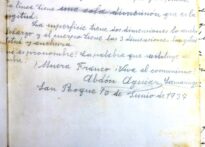 línea tiene una sola dimensión, que es la
longitud.
La superficie tiene dos dimensiones: lo ancho
largo; y el cuerpo tiene las 3 dimensiones: longitud
y anchura
el pronombre? La palabra que
¡Muera Franco! ¡Viva el comunismo
Abdón Aguiar
San Roque 10 de Junio de 1937